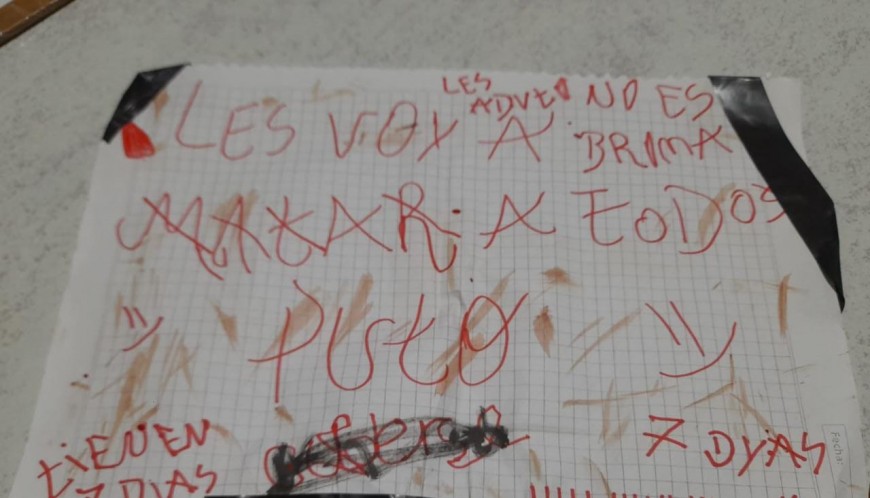 LES VOY A
LES
ADVE
NO ES
BRMA
MATAR A TODOS
PUTO
TIENEN
7 DIAS
7 DYAS
Fecha